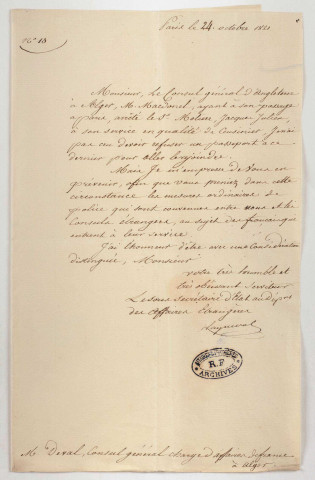 Paris le 24. octobre 1821
N° 18
Monsieur, le Consul général d'Angleterre
à Alger, M. Macdonel, ayant à son passage
à Paris, arrêté le Sr. Moliere, Jacques Julien,
à son service en qualité de Cuisinier, Je n'ai
pas cru devoir refuser un passeport à ce
dernier pour aller le rejoindre.
Mais Je m'empresse de Vous en
prévenir, afin que vous preniez dans cette
circonstance les mesures ordinaires de
police qui sont convenues entre vous et les
Consuls étrangers, au sujet des français qui
entrent à leur service.
J'ai l'honneur d'être avec une Considération
distinguée, Monsieur
votre très humble et
très obéissant Serviteur
Le sous Secrétaire d'Etat au Dépt.
des Affaires étrangères
Rayneval
R.F
ARCHIVES
Mr. Deval, Consul général chargé d'affaires de france
à Alger